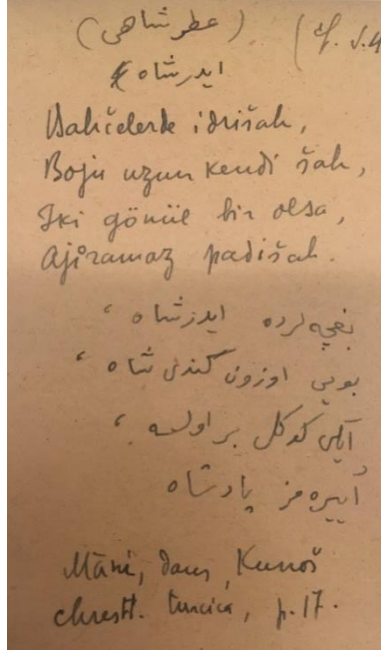 (عطرشاهی) (cf. J.4
ایدرشاه
Bahčelerde idrišah,
Boju uzun kendi šah,
Iki gönül bir olsa,
Ajîramaz padišah.
بغچه‌لرده ایدرشاه ،
بویی اوزون کندی شاه ،
ایکی کوکل بر اولسه ،
آییره‌مز پادشاه
Māni, dans Kunoš
chrest. turcica, p. 17.